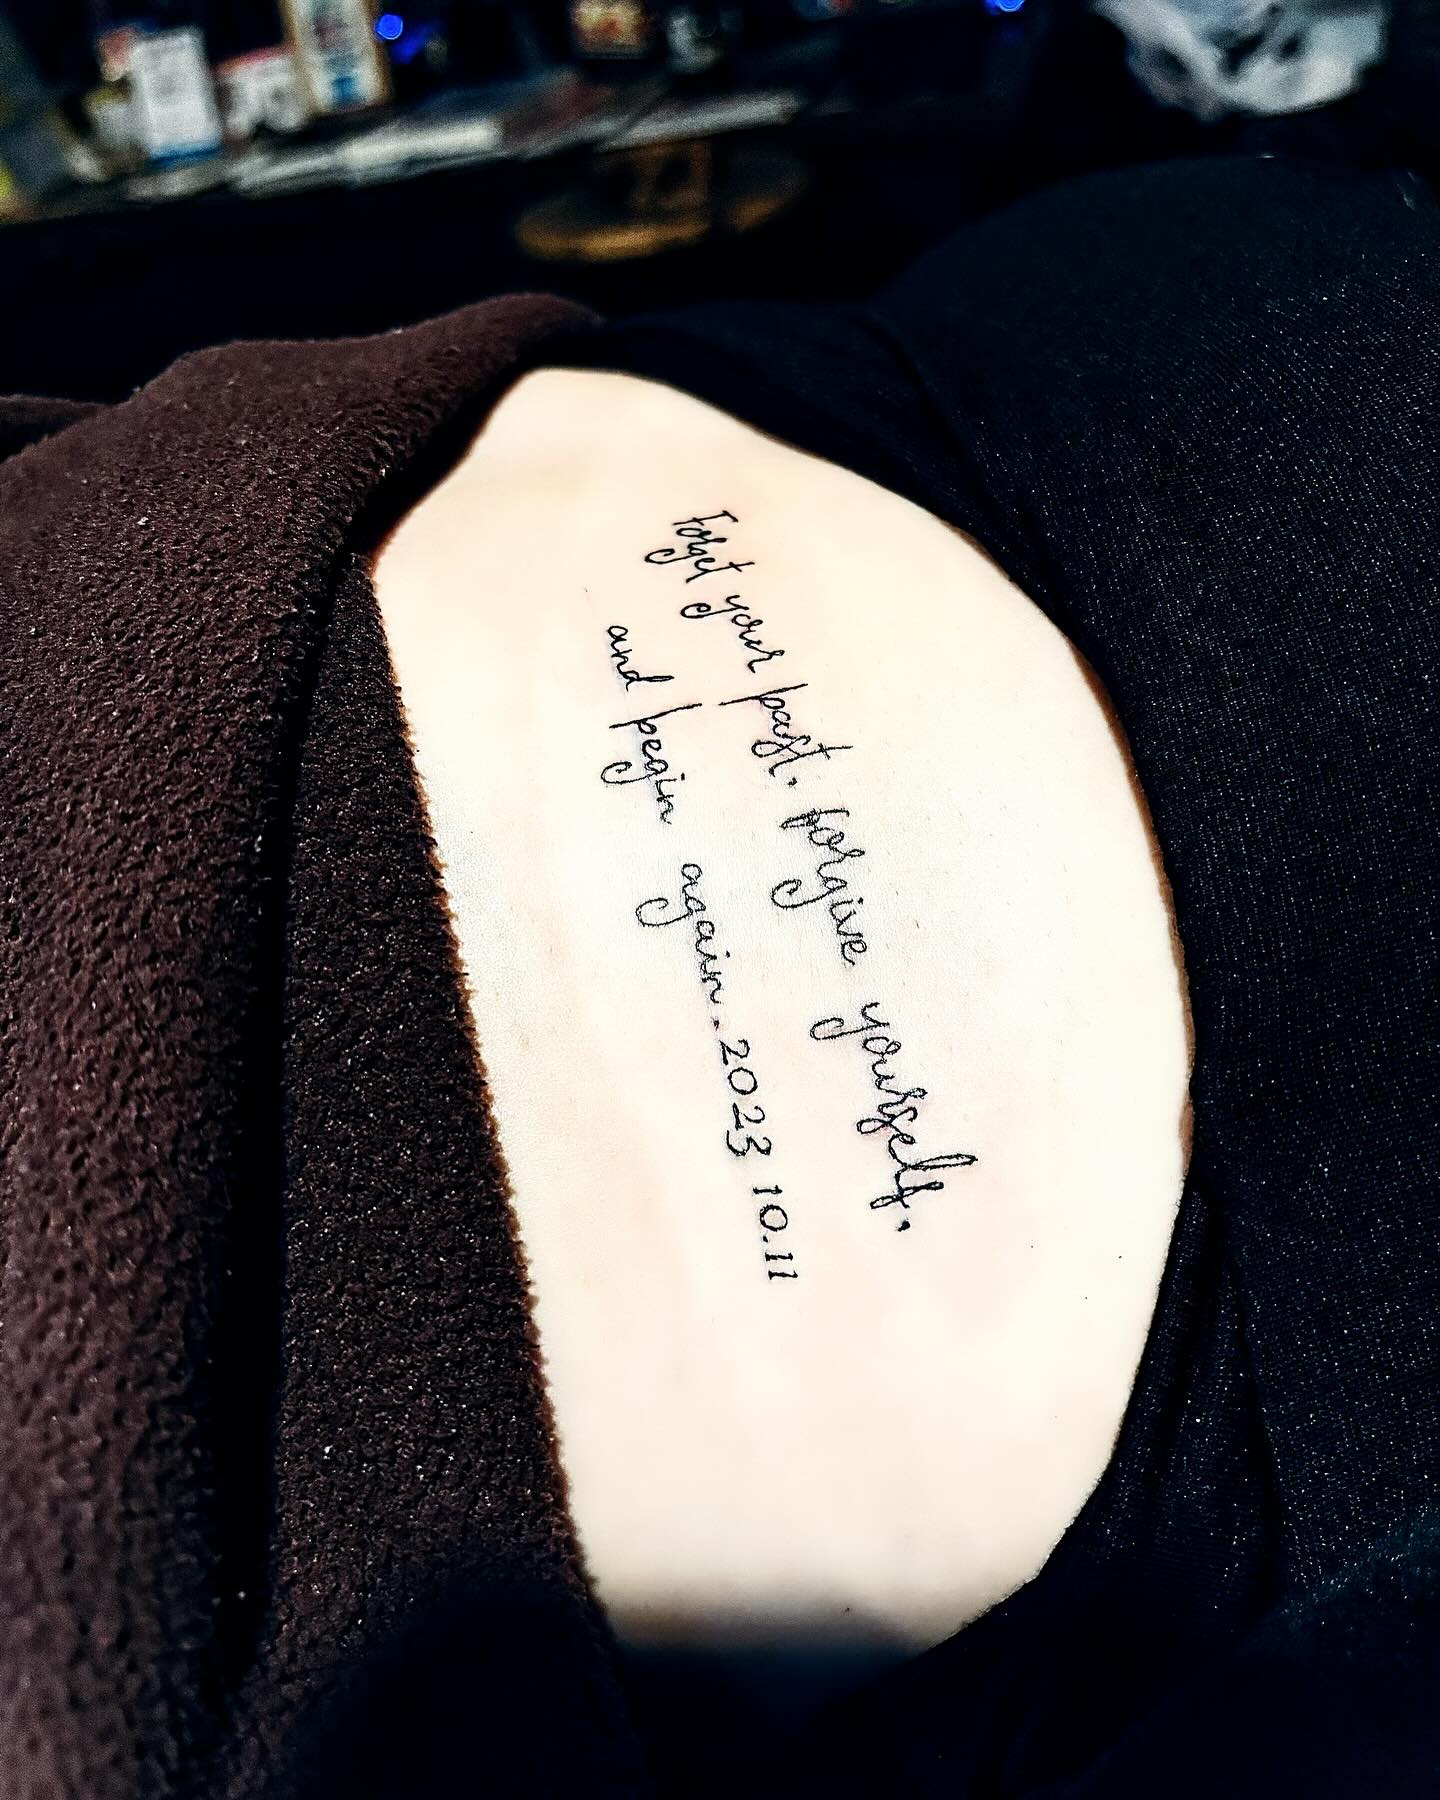 Forget your past. forgive yourself.
and begin again. 2023 10.11